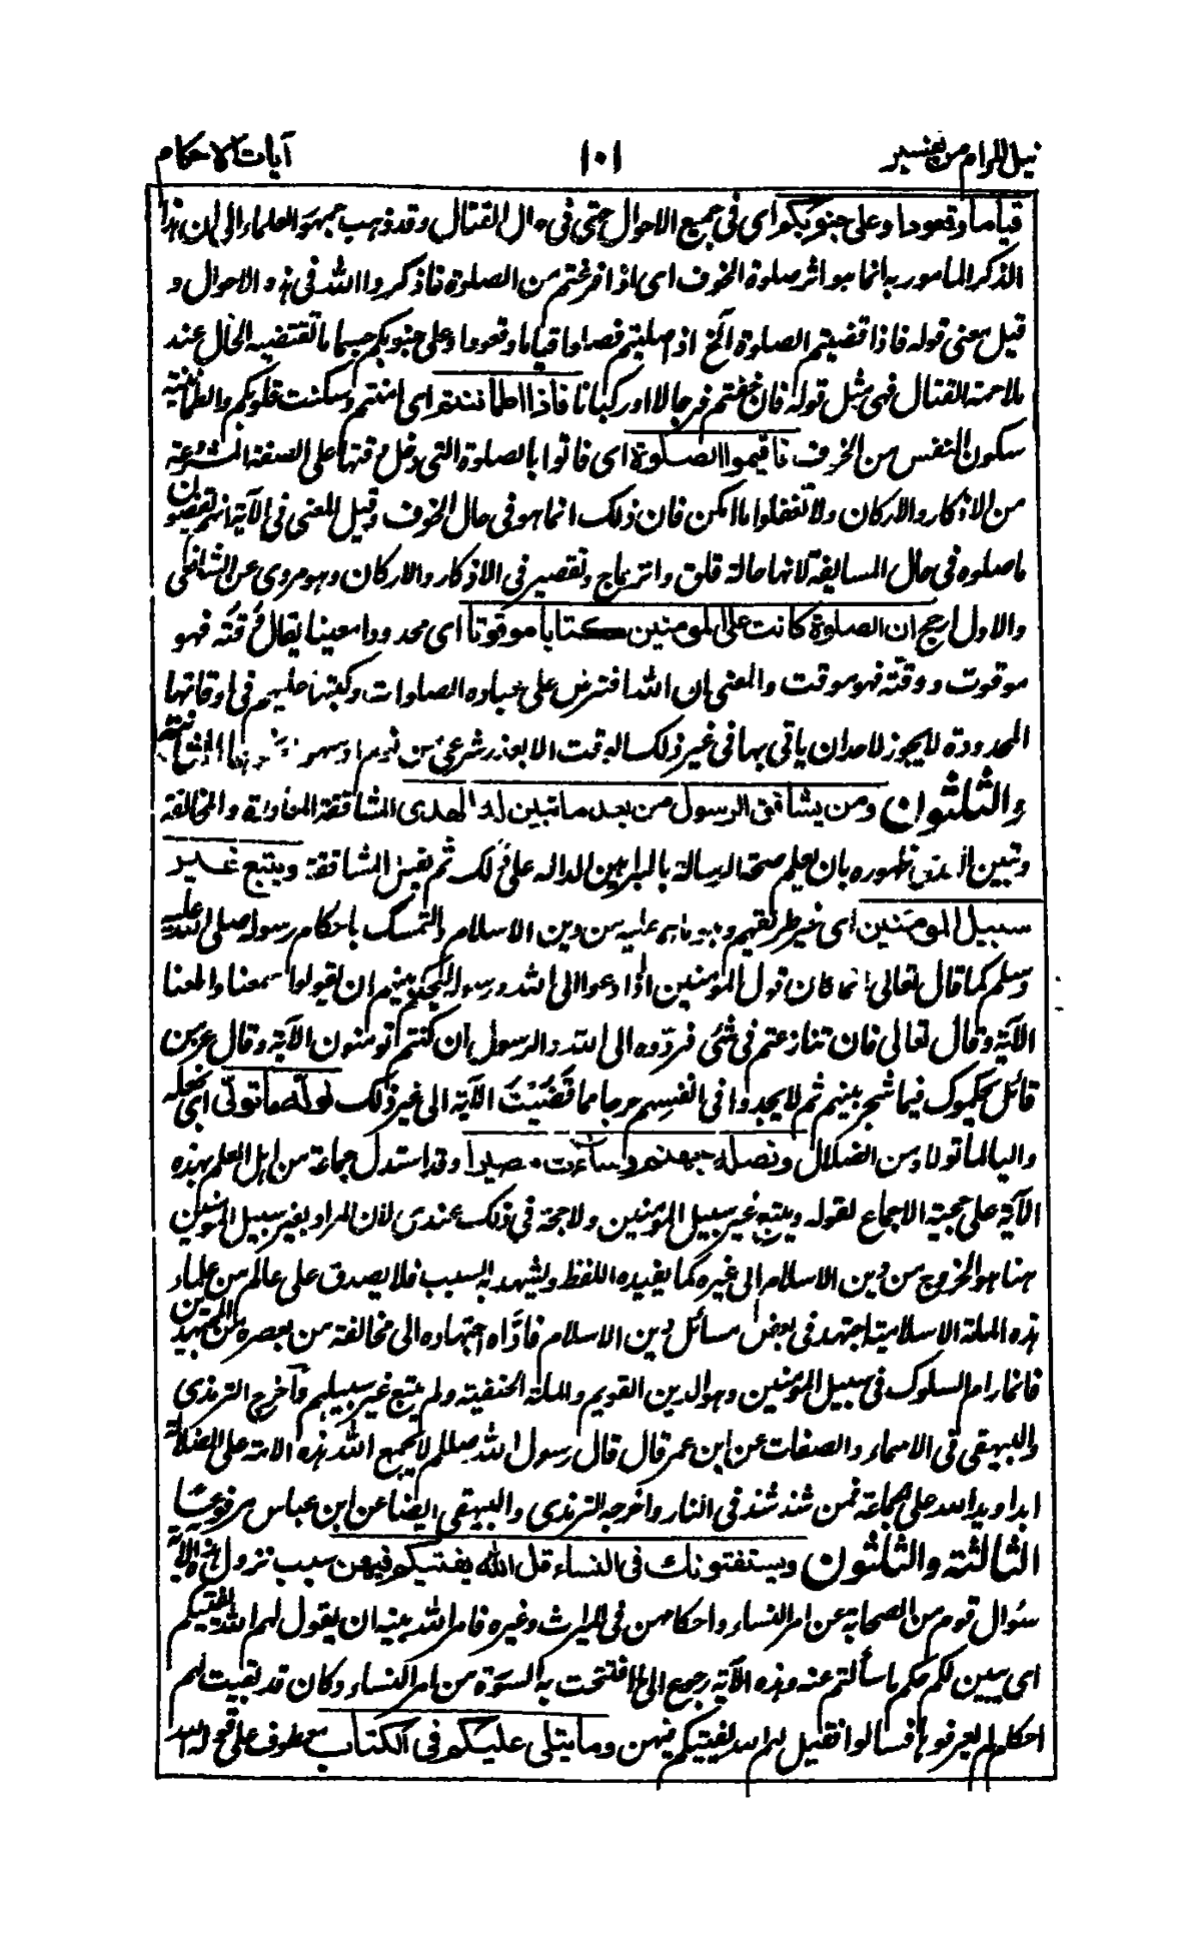 نيل المرام من تفسير ١٠١ آيات الاحكام
قياما وقعودا وعلى جنوبكم اى فى جميع الاحوال حتى فى حال القتال وقد ذهب جمهور العلماء الى ان هذا
الذكر المامور به انما هو اثر صلوة الخوف اى اذا فرغتم من الصلوة فاذكروا الله فى هذه الاحوال و
قيل معنى قوله فاذا قضيتم الصلوة الخ اذا صليتم فصلوا قياما وقعودا وعلى جنوبكم حسبما تقتضيه الحال عند
ملاحمة القتال فهى مثل قوله فان خفتم فرجالا اور كبانا فاذا اطمأننتم اى امنتم وسكنت قلوبكم والطمانينة
سكون النفس من الخوف فاقيموا الصلوة اى فاتوا بالصلوة التى دخل وقتها على الصفة المشروعة
من الاذكار والاركان ولا تغفلوا ما امكن فان ذلك انما هو فى حال الخوف وقيل المعنى فى الآية انهم يقضون
ما صلوه فى حال المسايفة لانها حالة قلق وانزعاج وتقصير فى الاذكار والاركان وهو مروى عن الشافعى
والاول ارجح ان الصلوة كانت على المومنين كتابا موقوتا اى محدودا معينا يقال وَقَتَه فهو
موقوت ووقّته فهو موقت والمعنى ان الله افترض على عباده الصلوات وكتبها عليهم فى اوقاتها
المحدودة لا يجوز لاحد ان ياتى بها فى غير ذلك الوقت الا بعذر شرعى من نوم او سهو الثانية
والثلثون ومن يشاقق الرسول من بعد ما تبين له الهدى المشاققة المعاداة والمخالفة
وتبين الهدى ظهوره بان يعلم صحة الرسالة بالبراهين الدالة على ذلك ثم يفعل المشاققة ويتبع غير
سبيل المومنين اى غير طريقهم وهو ما هم عليه من دين الاسلام والتمسك باحكام رسوله صلى الله عليه
وسلم كما قال تعالى انما كان قول المؤمنين اذا دعوا الى الله ورسوله ليحكم بينهم ان يقولوا سمعنا واطعنا
الآية وقال تعالى فان تنازعتم فى شئ فردّوه الى الله والرسول ان كنتم تومنون الآية وقال عز من
قائل يحكموك فيما شجر بينهم ثم لا يجدوا فى انفسهم حرجا مما قَضَيْتَ الآية الى غير ذلك نولّه ما تولّى اى نجعله
واليا لما تولاه من الضلال ونصله جهنم وساءت مصيرا وقد استدل جماعة من اهل العلم بهذه
الآية على حجية الاجماع لقوله ويتبع غير سبيل المؤمنين ولا حجة فى ذلك عندى لان المراد بغير سبيل المومنين
هنا هو الخروج من دين الاسلام الى غيره كما يفيده اللفظ ويشهد به السبب فلا يصدق على عالم من علماء
هذه الملة الاسلامية اجتهد فى بعض مسائل دين الاسلام فادّاه اجتهاده الى مخالفة من بعصره من المجتهدين
فانما رام السلوك فى سبيل المؤمنين وهو الدين القويم والملة الحنفية ولم يتبع غير سبيلهم وآخرج الترمذى
والبيهقى فى الاسماء والصفات عن ابن عمر قال قال رسول الله صللم لا يجمع الله هذه الامة على الضلالة
ابدا ويد الله على الجماعة فمن شذ شذ فى النار واخرجه الترمذى والبيهقى ايضا عن ابن عباس مرفوعًا
الثالثة والثلثون ويستفتونك فى النساء قل الله يفتيكم فيهن سبب نزول هذه الآية
سُوال قوم من الصحابة عن امر النساء واحكامهن فى الميراث وغيره فامر الله نبيه ان يقول لهم الله يفتيكم
اى يبين لكم حكم ما سألتم عنه وهذه الآية رجوع الى ما افتتحت به السورة من امر النساء وكان قد بقيت لهم
احكام لم يعرفوها فسالوا فقيل لهم الله يفتيكم فيهن وما يتلى عليكم فى الكتاب معطوف على قوله الله